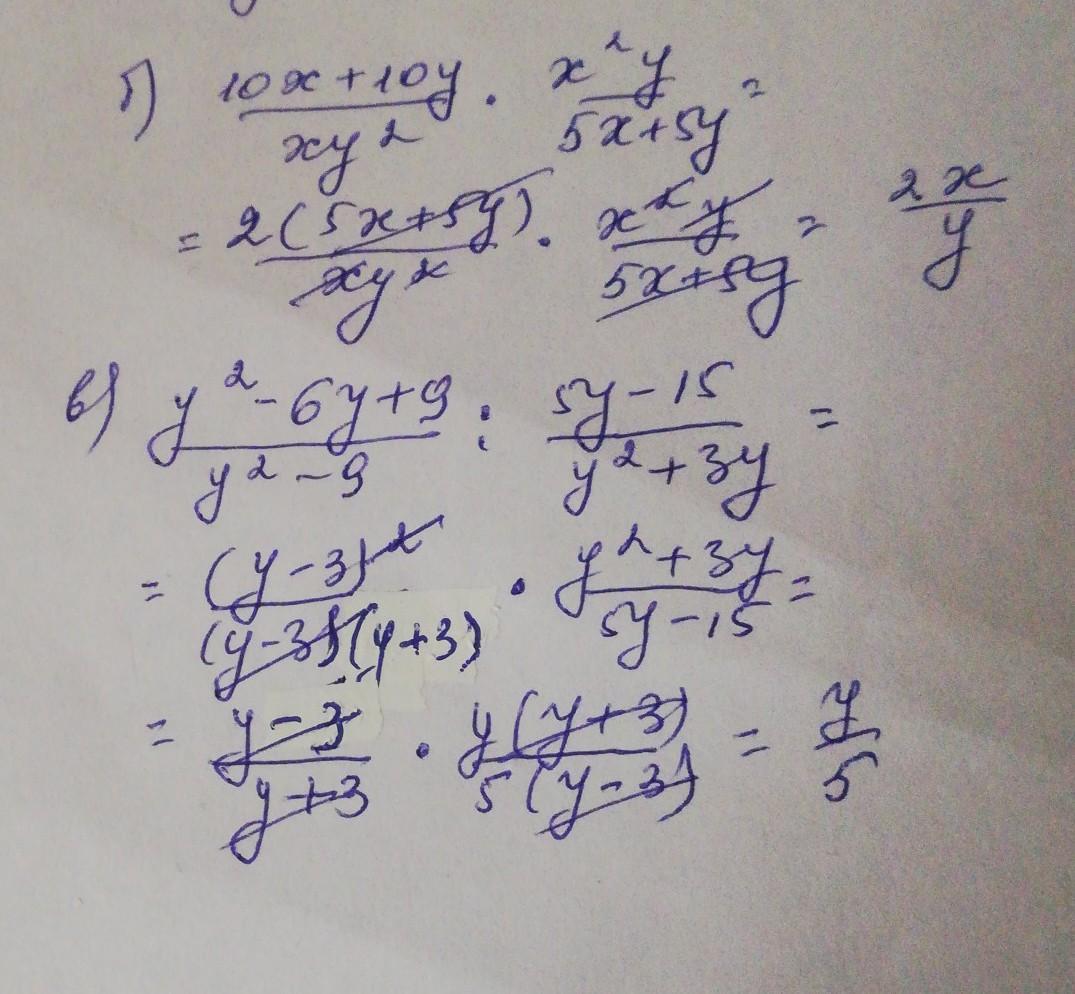 б) (10x+10y)/(xy²) · (x²y)/(5x+5y) =
= (2(5x+5y))/(xy²) · (x²y)/(5x+5y) = (2x)/y
в) (y²-6y+9)/(y²-9) : (5y-15)/(y²+3y) =
= (y-3)²/((y-3)(y+3)) · (y²+3y)/(5y-15) =
= (y-3)/(y+3) · (y(y+3))/(5(y-3)) = y/5